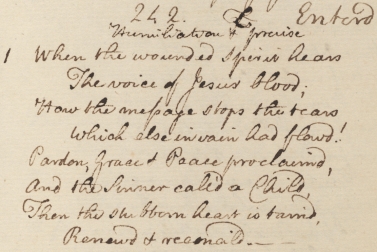 242. Enterd
Humiliation & praise
1 When the wounded spirit hears
The voice of Jesus blood;
How the message stops the tears
Which else in vain had flow'd!
Pardon, Grace & Peace proclaim'd,
And the Sinner call'd a Child,
Then the stubborn heart is tam'd,
Renew'd & reconcil'd.—